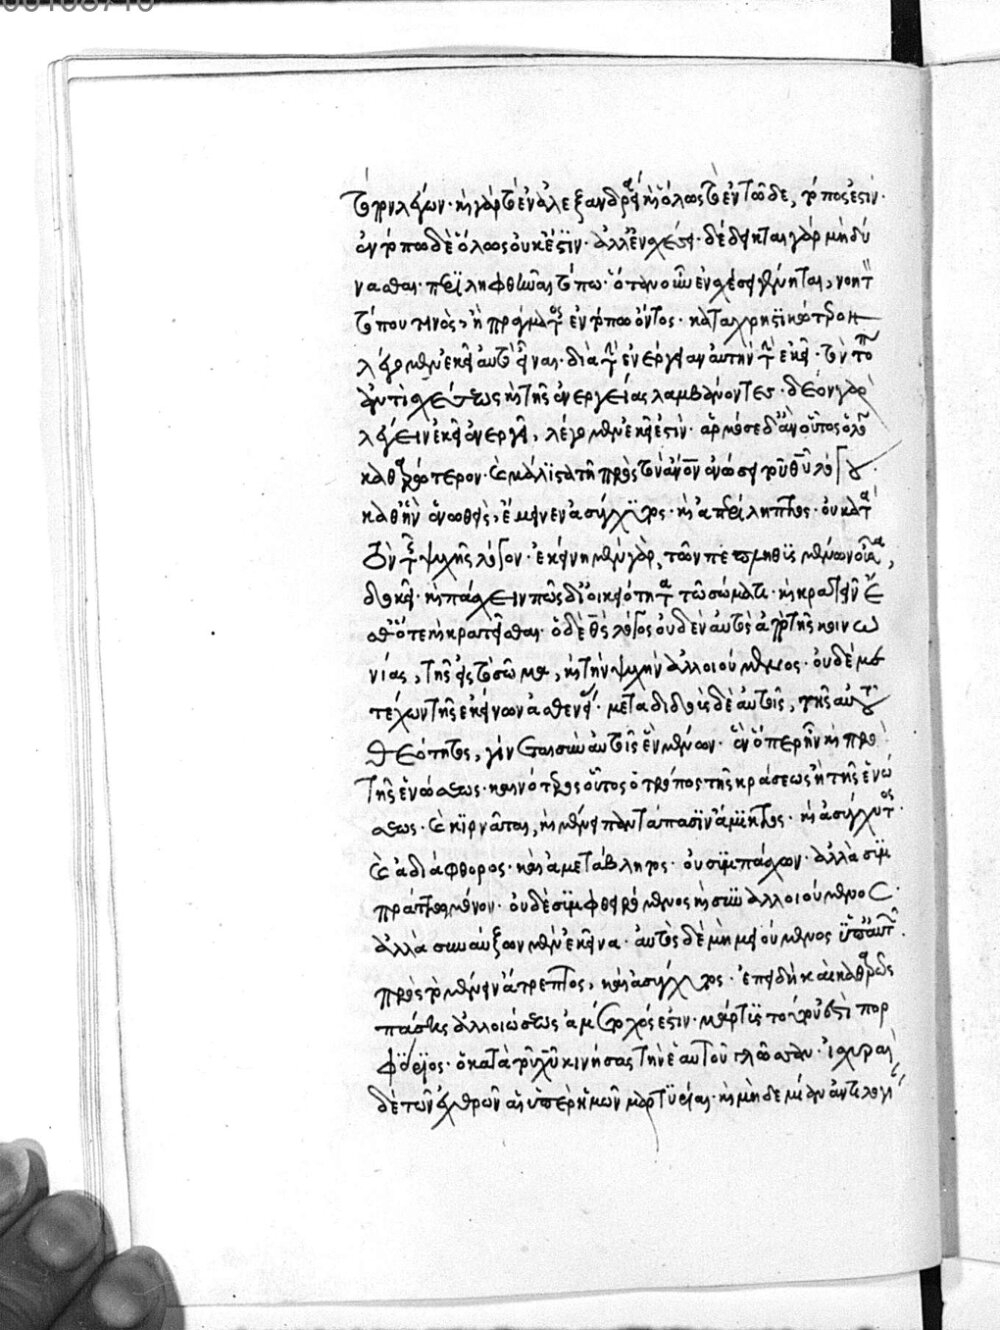 τόπον λέγων· καὶ γὰρ τὸ ἐν ἀλεξανδρεία καὶ ὅλως τὸ ἐν τῶδε, τόπος ἐστὶν·
ἐν τόπω δὲ ὅλως οὐκ ἔστιν· ἀλλ' ἐν σχέσει· δέδεικται γὰρ μὴ δύ
νασθαι περιληφθῆναι τόπω· ὅταν οὖν ἐν σχέσει γένηται, νοητὸν
τόπου τινὸς, ἢ πράγματος ἐν τόπω ὄντος· καταχρηστικώτερον
λέγομεν ἐκεῖ αὐτὸ εἶναι· διὰ τὴν ἐνέργειαν αὐτὴν τὴν ἐκεῖ· τὸν τόπον
ἀντὶ σχέσεως καὶ τῆς ἐνεργείας λαμβάνοντες· δέον γὰρ
λέγειν ἐκεῖ ἐνεργεῖ, λέγομεν ἐκεῖ ἐστίν· ἁρμόσειε δ' ἂν οὗτος ὁ λόγος
καθαρώτερον· καὶ μάλιστα τῆ πρὸς τὸν ἄνον ἑνώσει τοῦ θῦ λόγου·
καθ' ἣν ἑνωθεὶς, ἔμεινεν ἀσύγχυτος· καὶ ἀπερίληπτος· οὐ κατὰ
τὸν τῆς ψυχῆς λόγον· ἐκείνη μὲν γὰρ, τῶν πεπληθυσμένων οὖσα,
δοκεῖ· καὶ πάσχειν πῶς δι' οἰκειότητα τῶ σώματι· καὶ κρατεῖν ἔ
σθ' ὅτε καὶ κρατεῖσθαι· ὁ δὲ θς λόγος οὐδὲν αὐτὸς ἀπὸ τῆς κοινω
νίας, τῆς εἰς τὸ σῶμα, καὶ τὴν ψυχὴν ἀλλοιούμενος· οὐδὲ με
τέχων τῆς ἐκείνων ἀσθενείας· μεταδιδοὺς δὲ αὐτοῖς, τῆς αὐτοῦ
θεότητος, γίνεται σὺν αὐτοῖς ἓν μένων· ἓν ὅπερ ἦν καὶ πρὸ
τῆς ἑνώσεως· καινότερος οὗτος ὁ τρόπος τῆς κράσεως ἢ τῆς ἑνώ
σεως· καὶ κίρναται, καὶ μένει παντάπασιν ἄμικτος· καὶ ἀσύγχυτος·
καὶ ἀδιάφθορος· καὶ ἀμετάβλητος· οὐ συμπάσχων· ἀλλὰ συμ
πράττόμενον· οὐδὲ συμφθειρόμενος καὶ συναλλοιούμενος·
ἀλλὰ συναύξων μὲν ἐκεῖνα· αὐτὸς δὲ μὴ μειούμενος ὑπ' αὐτῶν·
πρὸς τὸ μένειν ἄτρεπτος, καὶ ἀσύγχυτος· ἐπειδὴ καὶ καθαρῶς
πάσης ἀλλοιώσεως ἀμέτοχός ἐστιν· μάρτυς τούτου ἔστω πορ
φύριος· ὁ κατὰ τοῦ χῦ κινήσας τὴν ἑαυτοῦ γλῶσσαν· ἰσχυραὶ
δὲ τῶν ἐχθρῶν αἱ ὑπὲρ ἡμῶν μαρτυρίαι· καὶ μηδεμίαν ἀντιλογί